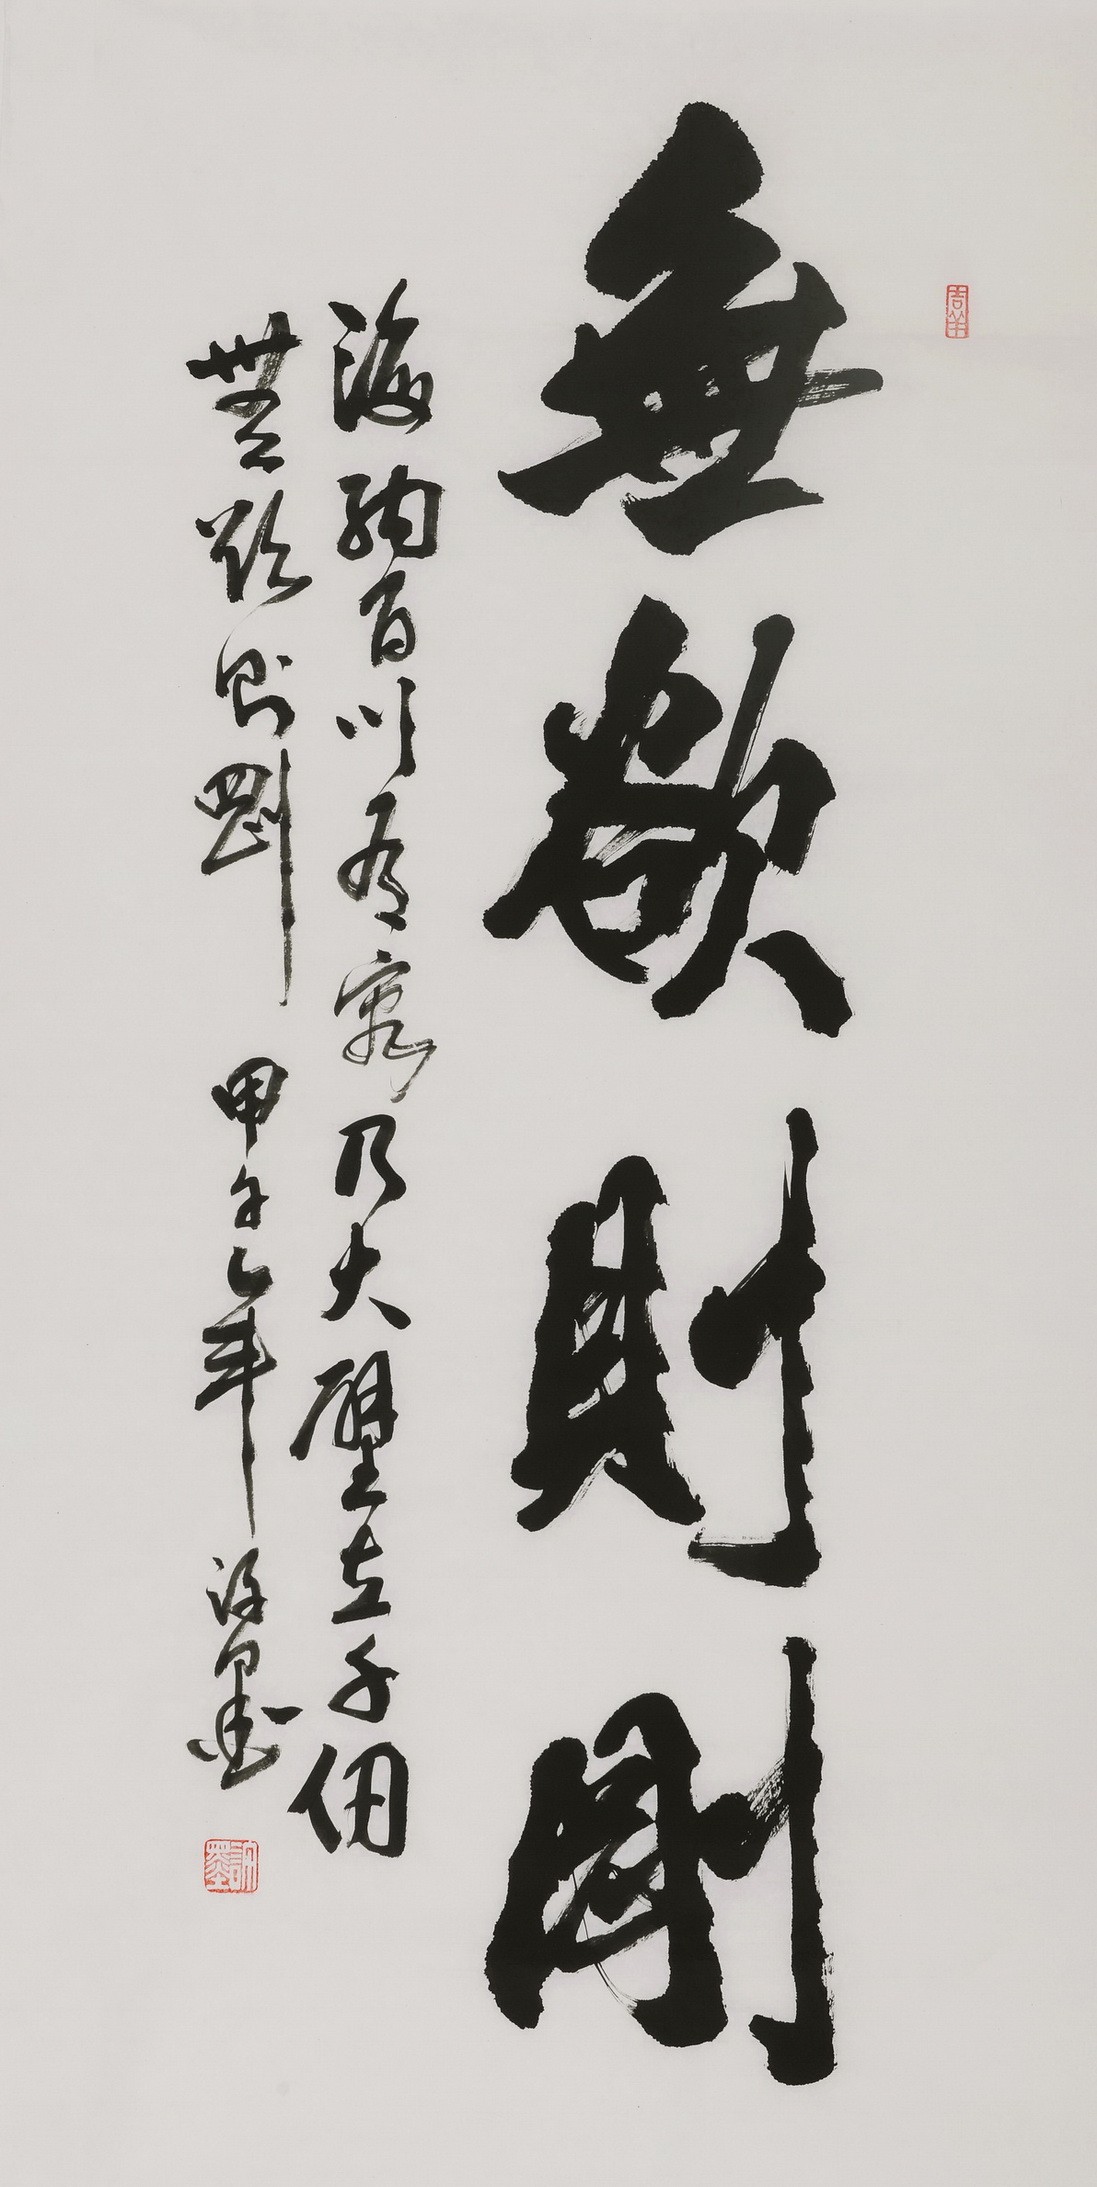 無欲則剛
海納百川有容乃大壁立千仞
無欲則剛 甲午年 許墨
許墨